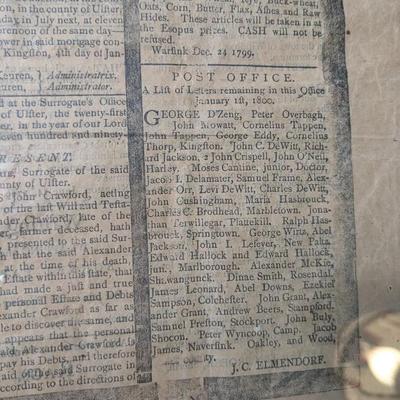 in, in the county of Ulster,
July next, at eleven of the
afternoon of the same day
power in said mortgage con-
Kingston, 4th day of Jan-
Keuren, } Administratrix.
uren, } Administrator.
ed at the Surrogate's Office
of Ulster, the twenty-first
ber, in the year of our Lord
even hundred and ninety-
RESENT.
Surrogate of the said
county of Ulster.
John Crawford, acting
of the last Will and Testa-
ander Crawford, late of the
farmer, deceased, hath
presented to the said Sur-
that the said Alexander
at the time of his death,
Estate within this state, that
made a just and true
personal Estate and Debts
Alexander Crawford as far as
le to discover the same, and
appears that the personal
said Alexander Crawford is
pay his Debts, and therefore
aid of the said Surrogate in
according to the directions of
Buck-wheat,
Oats, Corn, Butter, Flax, Ashes and Raw
Hides. These articles will be taken in at
the Esopus prizes. CASH will not be
refused.
Warsink Dec. 24, 1799.
POST OFFICE.
A List of Letters remaining in this Office
January 1st, 1800.
GEORGE D'Zeng, Peter Overbagh,
John Mowatt, Cornelius Tappen,
John Tappen, George Eddy, Cornelius
Thorp, Kingston. John C. DeWitt, Rich-
ard Jackson, 2 John Crispell, John O'Neil,
Harley. Moses Cantine, junior, Doctor,
Jacob I. Delamater, Samuel Frame, Alex-
ander Orr, Levi DeWitt, Charles DeWitt,
John Cushingham, Maria Hasbrouck,
Charles C. Brodhead, Marbletown. Jona-
than Terwillegar, Plattekill. Ralph Has-
brouck, Springtown. George Wirtz, Abel
Jackson, John I. Lefever, New Paltz.
Edward Hallock and Edward Hallock,
jun., Marlborough. Alexander McKie,
Shawangunck. Dinne Smith, Rosendal.
James Leonard, Abel Downs, Ezekiel
Sampson, Colchester. John Grant, Alex-
ander Grant, Andrew Beers, Stampford.
Samuel Preston, Stockport. John Buly,
Shocon. Peter Wyncoop, Camp. Jacob
James, Naversink. Oakley, and Wood,
county.
J. C. ELMENDORF.